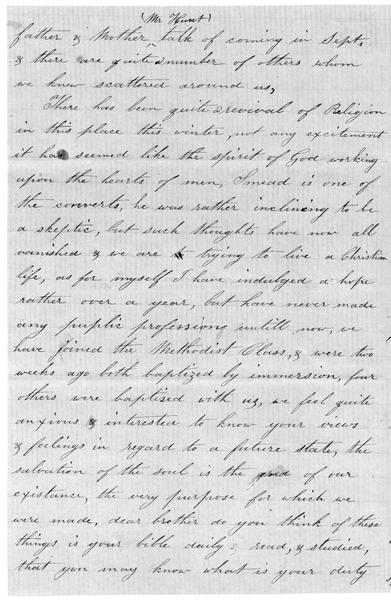 (Mr. Hunt)
father & Mother, talk of coming in Sept.
& there are quite a number of others whom
we knew scattered around us,
There has been quite a revival of Religion
in this place this winter, not any excitement
it has seemed like the spirit of God working
upon the hearts of men, Smead is one of
the converts, he was rather inclining to be
a skeptic, but such thoughts have now all
vanished & we are trying to live a Christian
life, as for myself I have indulged a hope
rather over a year, but have never made
any purplic professions untill now, we
have joined the Methodist Class, & were two
weeks ago both baptized by immersion, four
others were baptised with us, we feel quite
anxious & interested to know your views
& feelings in regard to a future state, the
salvation of the soul is the of our
existance, the very purpose for which we
were made, dear brother do you think of these
things is your bible daily & read, & studied,
that you may know what is your duty